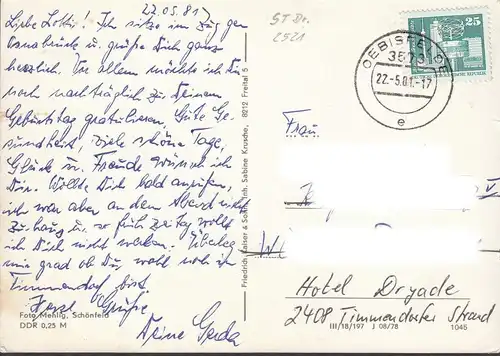 22.05.81
Liebe Lotti! Ich sitze im Zug gen
Osnabrück u. grüße Dich ganz
herzlich. Vor allem möchte ich Dir
noch nachträglich zu Deinem
Geburtstag gratulieren, Gute Ge-
sundheit, viele schöne Tage,
Glück u. Freude wünsch ich
Dir. Wollte Dich bald anrufen,
ich war aber an dem Abend nicht
zu Haus u. so früh zeitig wollt
ich Dich nicht wecken. Überleg
mir grad ob Du, wohl noch in
Timmendorf bist.
Herzl. Grüße
Deine Gerda
Foto Mehlig, Schönfeld
DDR 0,25 M
Friedrich Kaiser & Sohn, Inh. Sabine Krusche, 8212 Freital 5
ST Br.
2521
OEBISFELDE
3573
22.-5.81.-17
e
25
Frau
Hotel Dryade
2408 Timmendorfer Strand
III/18/197 J 08/78 1045